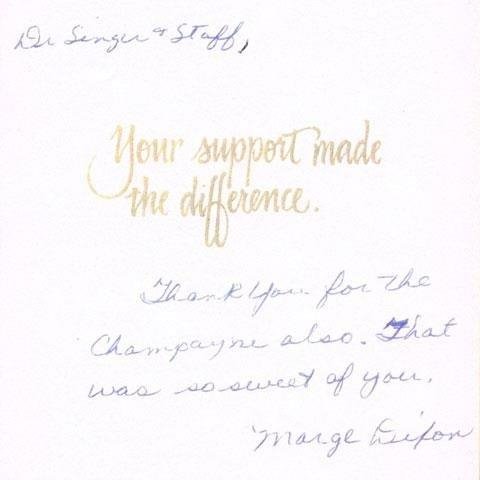 Dr Singer & Staff,
Your support made
the difference.
Thank You for the
Champagne also. That
was so sweet of you.
Marge Dixon